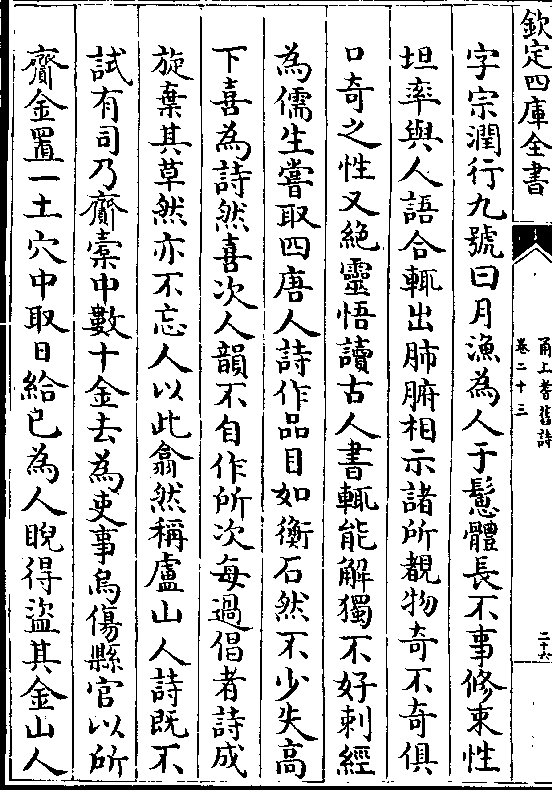 欽定四庫全書
甬上耆舊詩
卷二十三
二十六
字宗潤行九號曰月漁為人于鬆體長不事修束性
坦率與人語合輒出肺腑相示諸所覩物奇不奇俱
口奇之性又絕靈悟讀古人書輒能解獨不好刺經
為儒生嘗取四唐人詩作品目如衡石然不少失高
下喜為詩然喜次人韻不自作所次每過倡者詩成
旋棄其草然亦不忘人以此翕然稱盧山人詩既不
試有司乃齎橐中數十金去為吏事烏傷縣官以所
齎金置一土穴中取日給已為人睨得盜其金山人